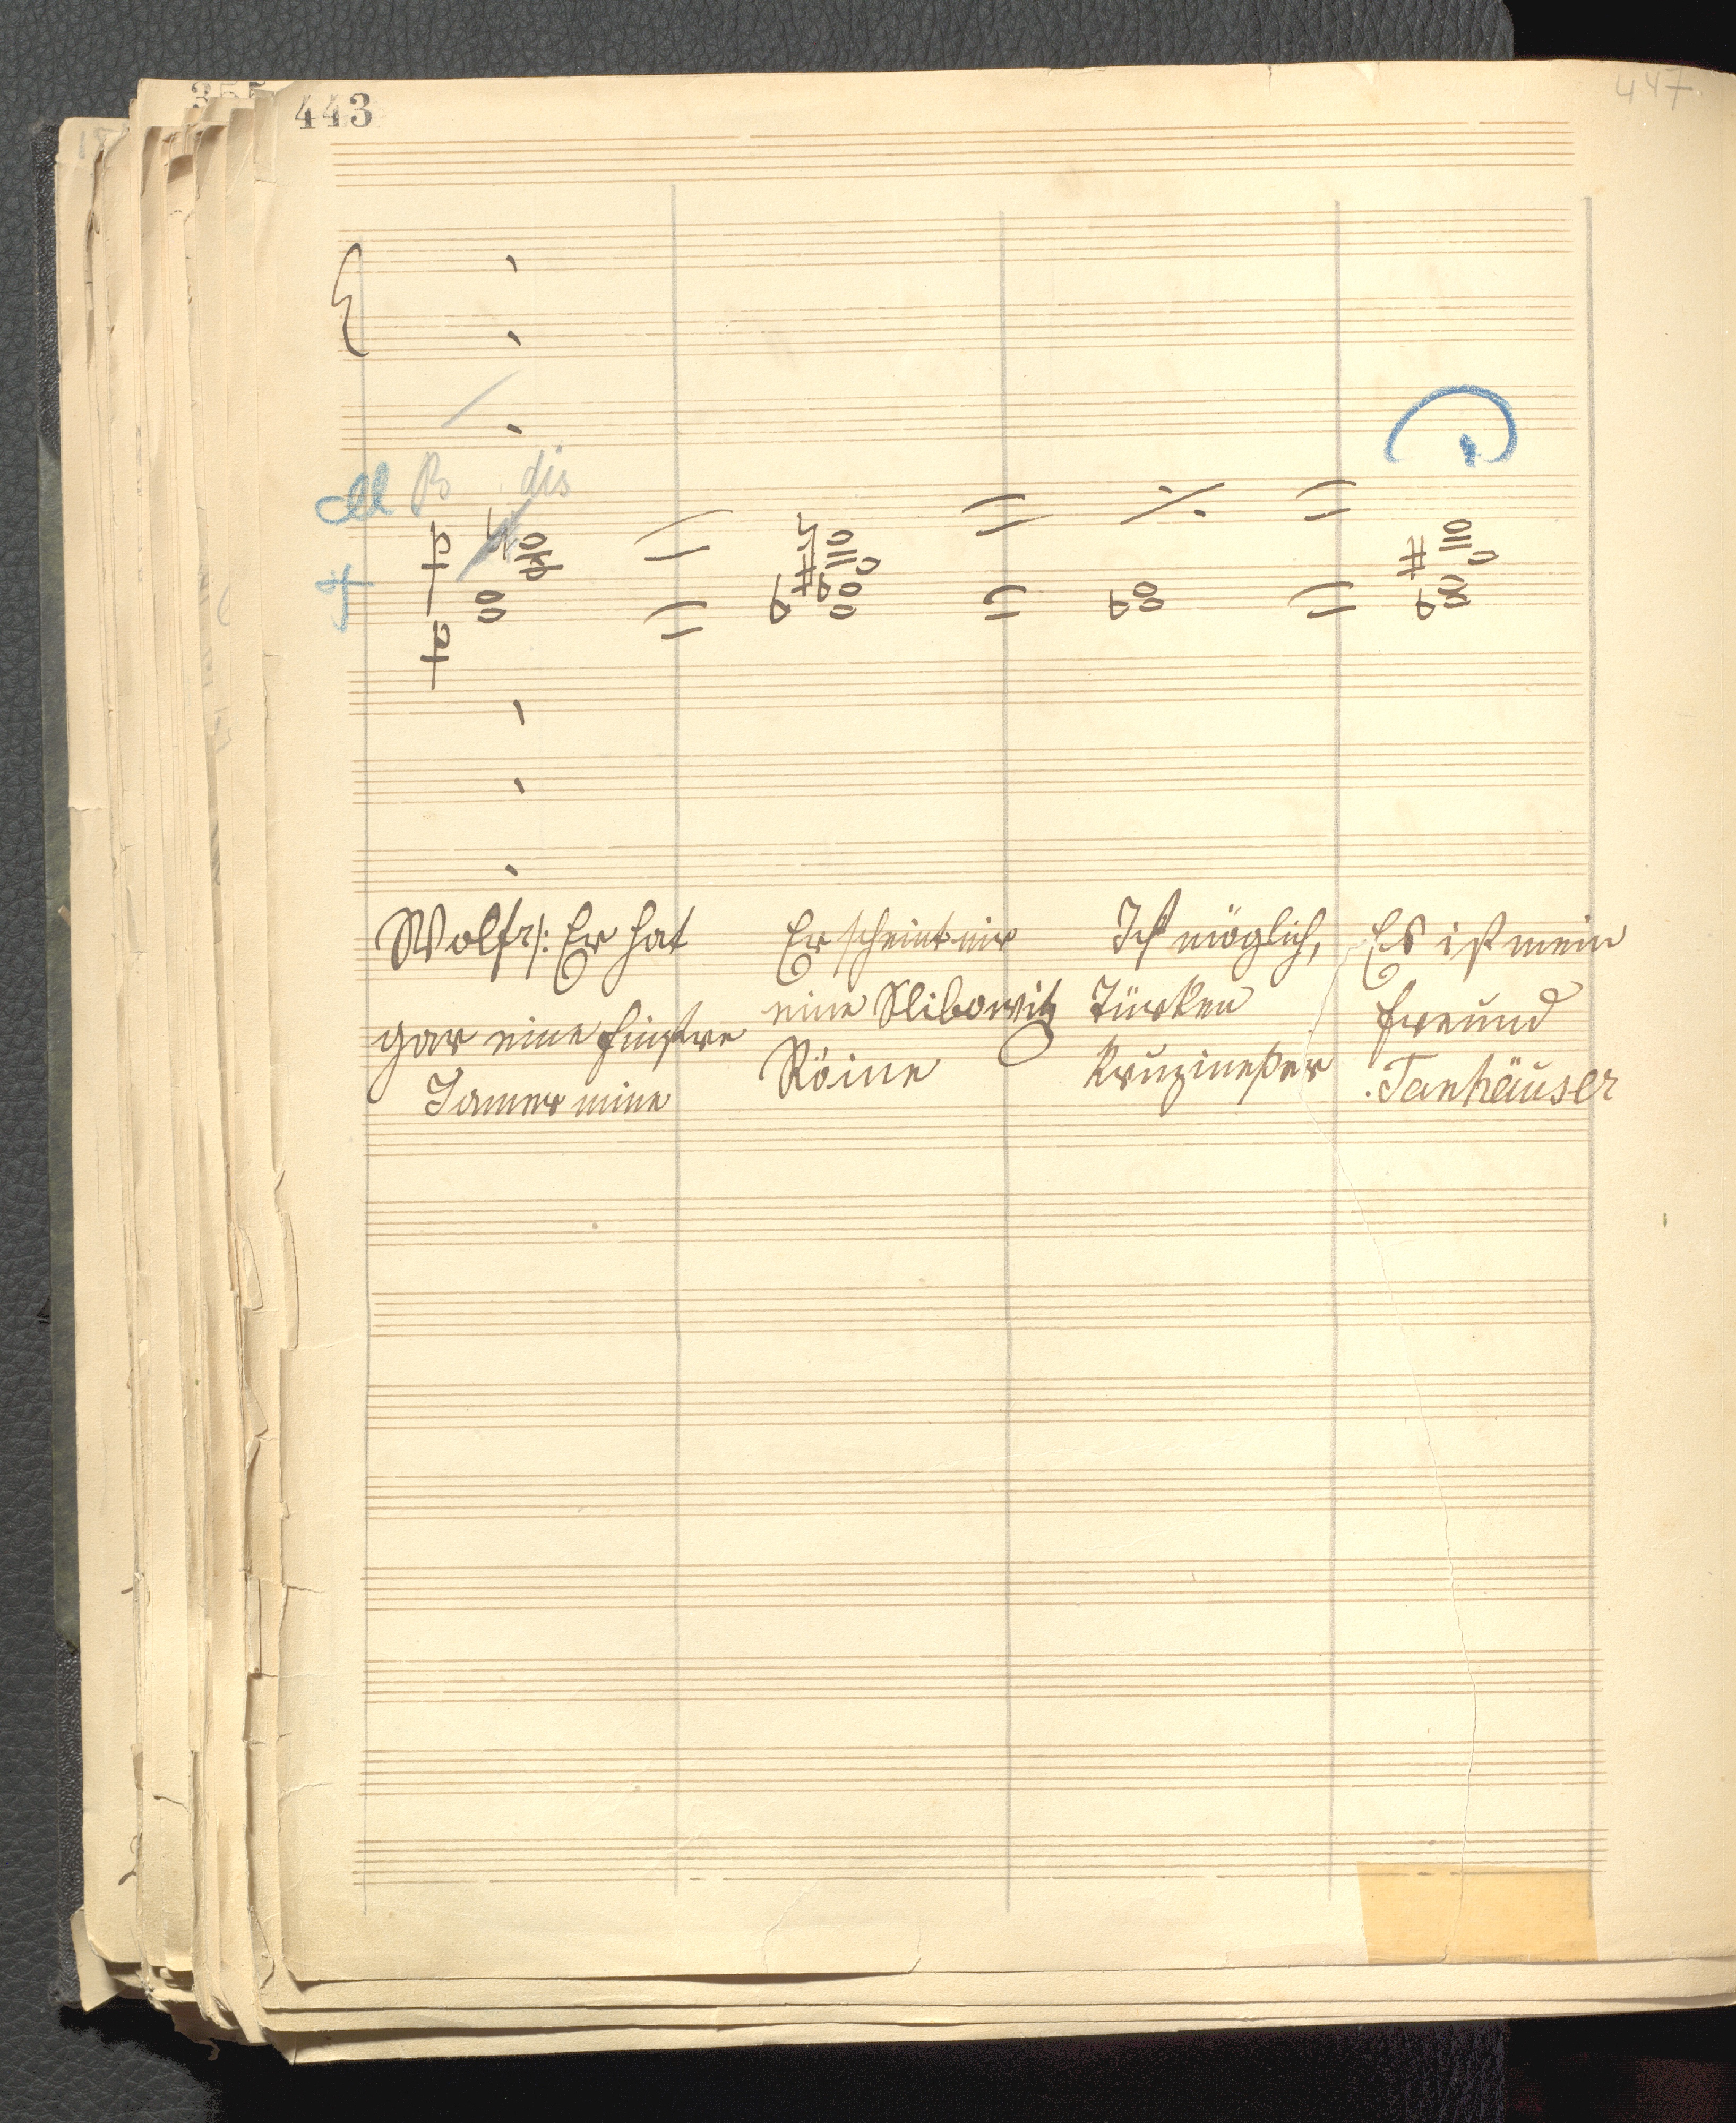 443
447
dis
Wolfr: Er hat
gar eine finstre
Jamermine
Er scheint mir
eine Slibowitz
Röine
Ist möglich,
Türken
Kruzineßer
Es ist mein
Freund
Tanhäuser